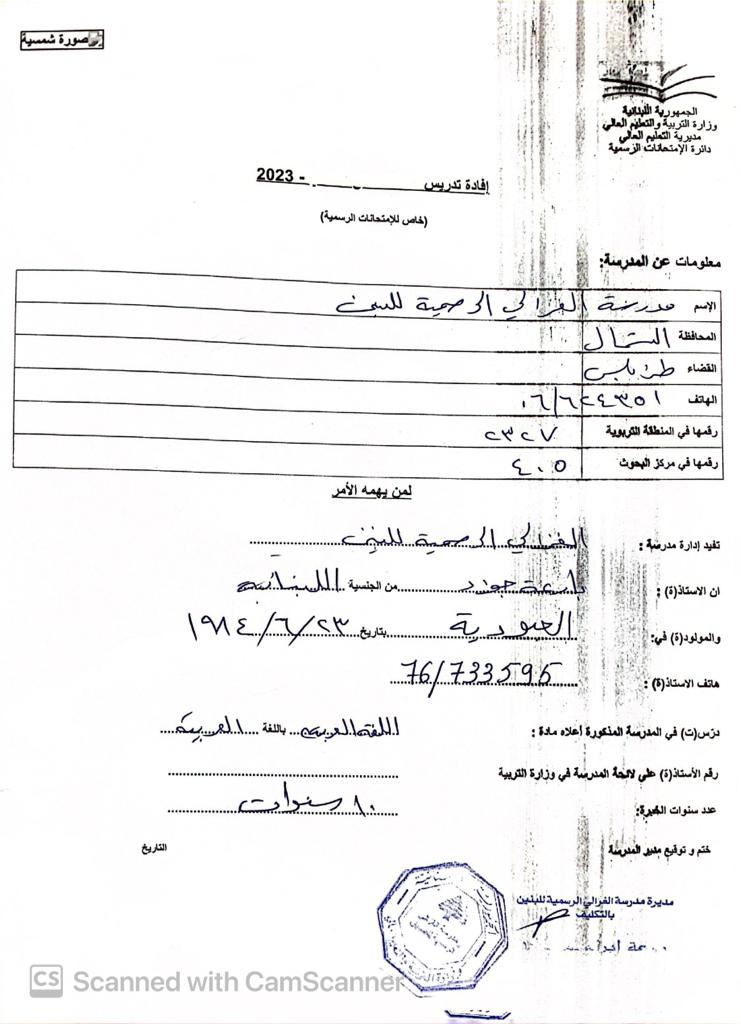 صورة شمسية
الجمهورية اللبنانية
وزارة التربية والتعليم العالي
مديرية التعليم العالي
دائرة الإمتحانات الرسمية
إفادة تدريس - 2023
(خاص للإمتحانات الرسمية)
معلومات عن المدرسة:
الإسم مدرسة الغزالي الرسمية للبنين
المحافظة الشمال
القضاء طرابلس
الهاتف ٠٦/٦٢٤٣٥١
رقمها في المنطقة التربوية ٢٣٢٧
رقمها في مركز البحوث ٤٠٥
لمن يهمه الأمر
تفيد إدارة مدرسة : الغزالي الرسمية للبنين
ان الاستاذ(ة) : من الجنسية اللبنانية
والمولود(ة) في: العبودية بتاريخ ٢٣/٦/١٩٨٤
هاتف الاستاذ(ة) : 76/733595
درّس(ت) في المدرسة المذكورة أعلاه مادة : اللغة العربية باللغة العربية
رقم الأستاذ(ة) على لائحة المدرسة في وزارة التربية
عدد سنوات الخبرة: ١٠ سنوات
ختم و توقيع مدير المدرسة التاريخ
مديرة مدرسة الغزالي الرسمية للبنين
بالتكليف
CS Scanned with CamScanner